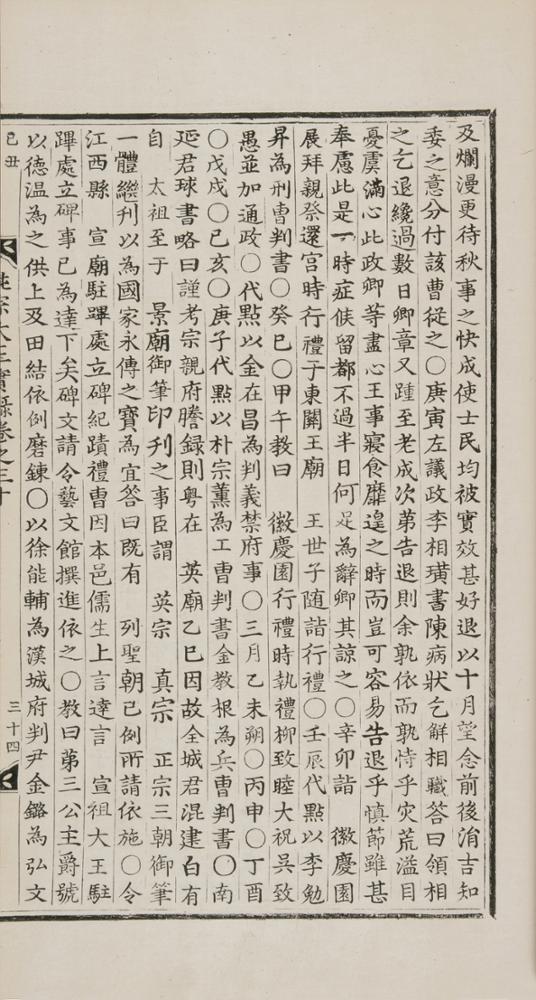 及爛漫更待秋事之快成使士民均被實效甚好退以十月望念前後涓吉知
委之意分付該曹從之〇庚寅左議政李相璜書陳病狀乞解相職答曰領相
之乞退纔過數日卿章又踵至老成次第告退則余孰依而孰恃乎灾荒溢目
憂虞滿心此政卿等盡心王事寢食靡遑之時而豈可容易告退乎愼節雖甚
奉慮此是一時症候留都不過半日何足為辭卿其諒之〇辛卯詣 徽慶園
展拜親祭還宮時行禮于東關王廟 王世子隨詣行禮〇壬辰代點以李勉
昇為刑曹判書〇癸巳〇甲午教曰 徽慶園行禮時執禮柳致睦大祝吳致
愚並加通政〇代點以金在昌為判義禁府事〇三月乙未朔〇丙申〇丁酉
〇戊戌〇己亥〇庚子代點以朴宗薰為工曹判書金教根為兵曹判書〇南
延君球書略曰謹考宗親府謄録則粤在 英廟乙巳因故全城君混建白有
自 太祖至于 景廟御筆印刊之事臣謂 英宗 真宗 正宗三朝御筆
一體繼刊以為國家永傳之寶為宜答曰既有 列聖朝已例所請依施〇令
江西縣 宣廟駐蹕處立碑紀蹟禮曹因本邑儒生上言達言 宣祖大王駐
蹕處立碑事已為達下矣碑文請令藝文館撰進依之〇教曰第三公主爵號
以德温為之供上及田結依例磨鍊〇以徐能輔為漢城府判尹金鏴為弘文
己丑
純宗大王實録卷之三十
三十四